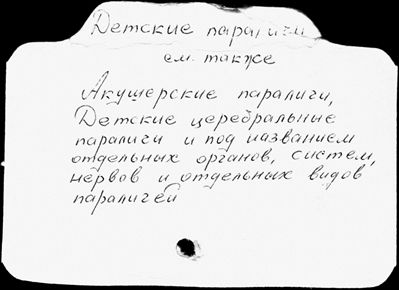 Детские параличи
см. также
Акушерские параличи,
Детские церебральные
параличи и под названием
отдельных органов, систем,
нервов и отдельных видов
параличей